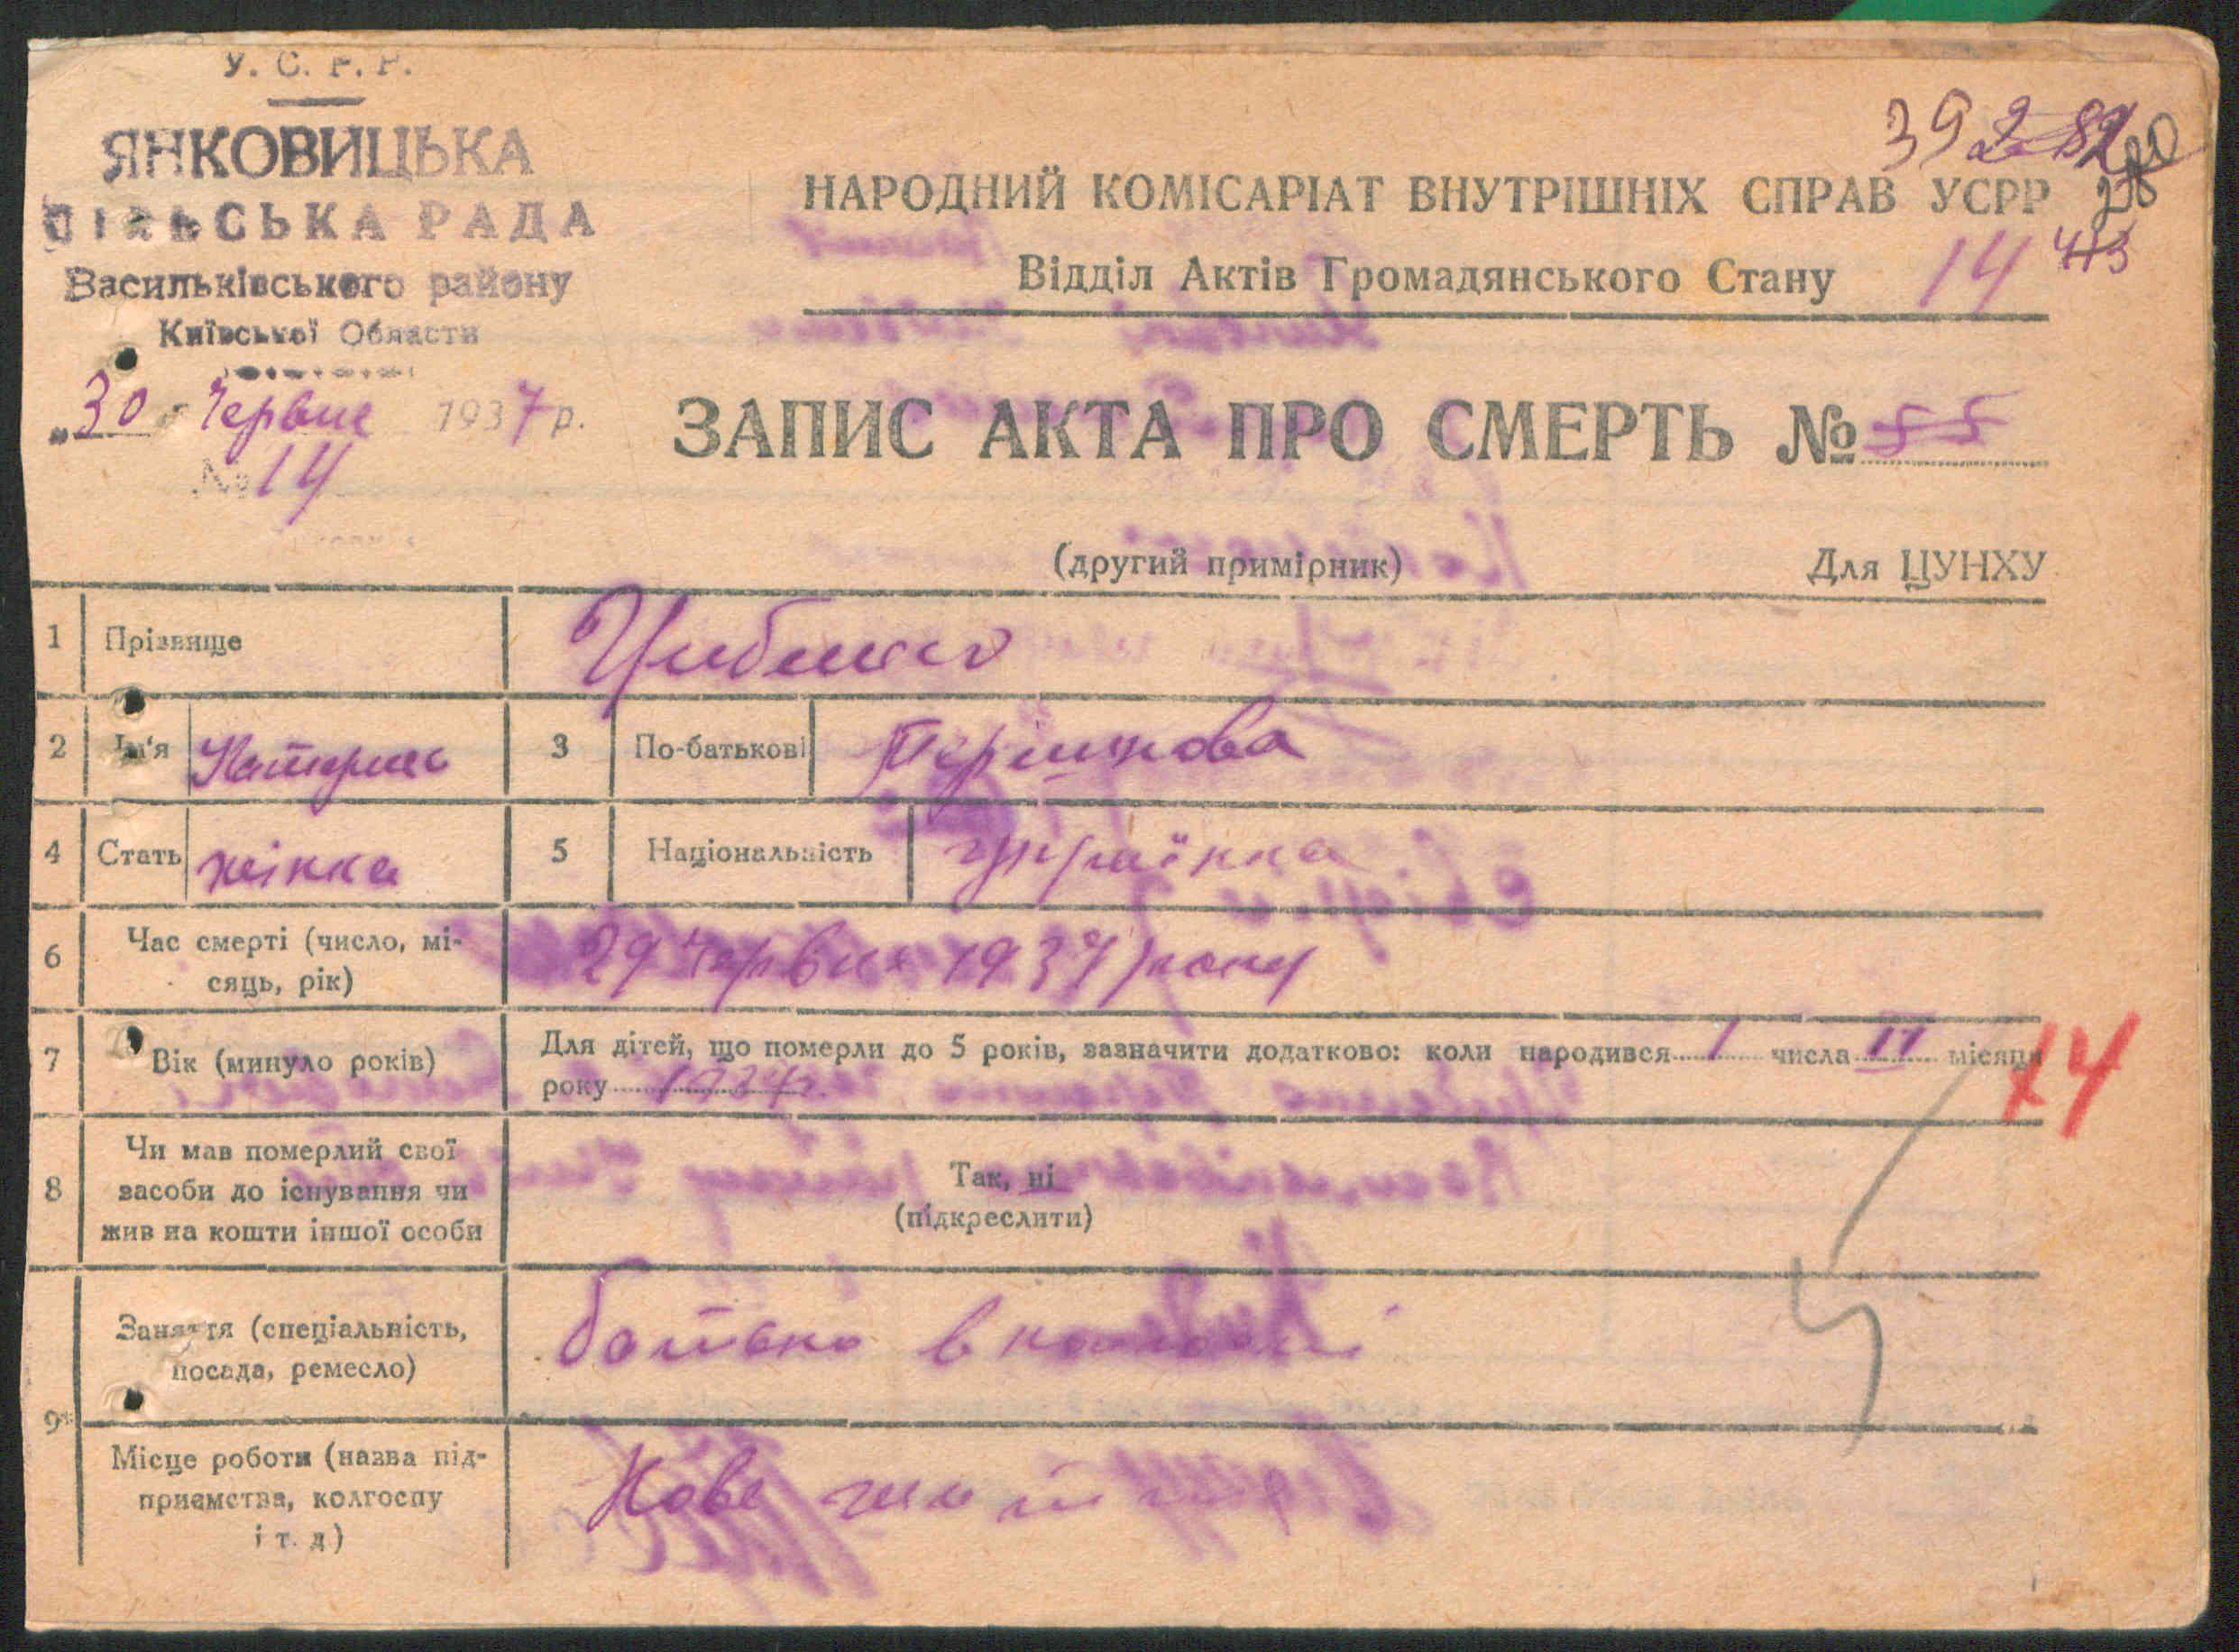 У. С. Р. Р.
ЯНКОВИЦЬКА
СІЛЬСЬКА РАДА
Васильківського району
Київської Области
„30 " Червня 1937 р.
№ 14
39
14
НАРОДНИЙ КОМІСАРІАТ ВНУТРІШНІХ СПРАВ УСРР
Відділ Актів Громадянського Стану
ЗАПИС АКТА ПРО СМЕРТЬ № 55
(другий примірник)
Для ЦУНХУ
1 Прізвище
2 Ім'я Катерина 3 По-батькові
4 Стать жінка 5 Національність
6 Час смерті (число, мі-
сяць, рік) 29 Червня 1937 року
7 Вік (минуло років) Для дітей, що померли до 5 років, зазначити додатково: коли народився 1 числа місяця
року
8 Чи мав померлий свої
засоби до існування чи
жив на кошти іншої особи
Так, ні
(підкреслити)
9 Заняття (спеціальність,
посада, ремесло) батько в
Місце роботи (назва під-
приємства, колгоспу
і т. д) Нове життя